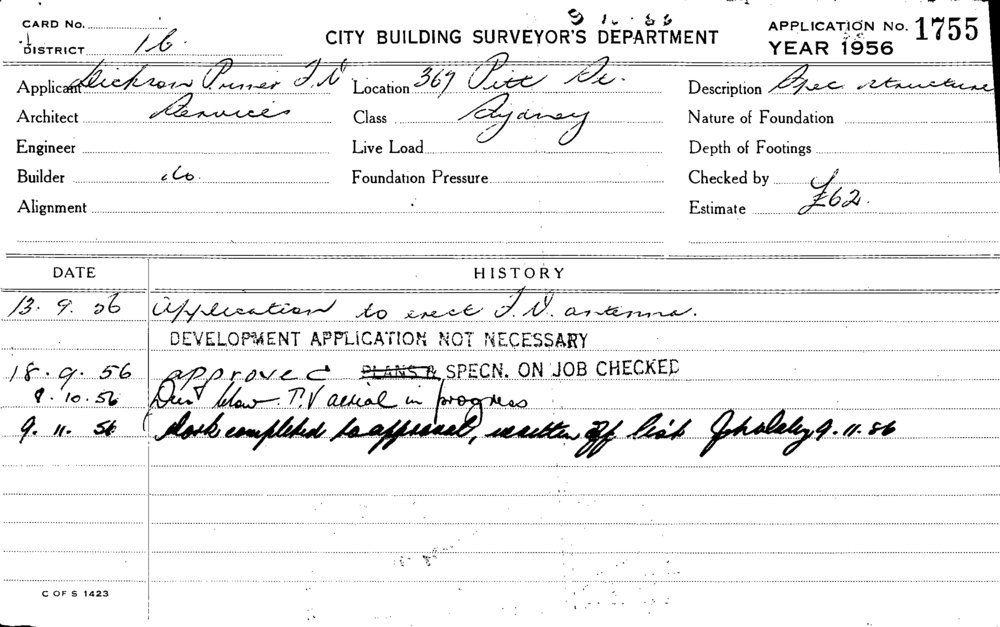 9 10 56
CARD No.
DISTRICT 16.
CITY BUILDING SURVEYOR'S DEPARTMENT
APPLICATION No. 1755
YEAR 1956
Applicant Dickson Primer T.V
Location 367 Pitt St.
Description Spec. structure
Architect Services
Class Sydney
Nature of Foundation
Engineer
Live Load
Depth of Footings
Builder do.
Foundation Pressure
Checked by
Alignment
Estimate £62.
DATE HISTORY
13. 9. 56 Application to erect T.V. antenna.
DEVELOPMENT APPLICATION NOT NECESSARY
18. 9. 56 approved PLANS & SPECN. ON JOB CHECKED
9. 10. 56 T.V aerial in progress
9. 11. 56 Work completed to approval, written off list 9. 11. 56
C OF S 1423